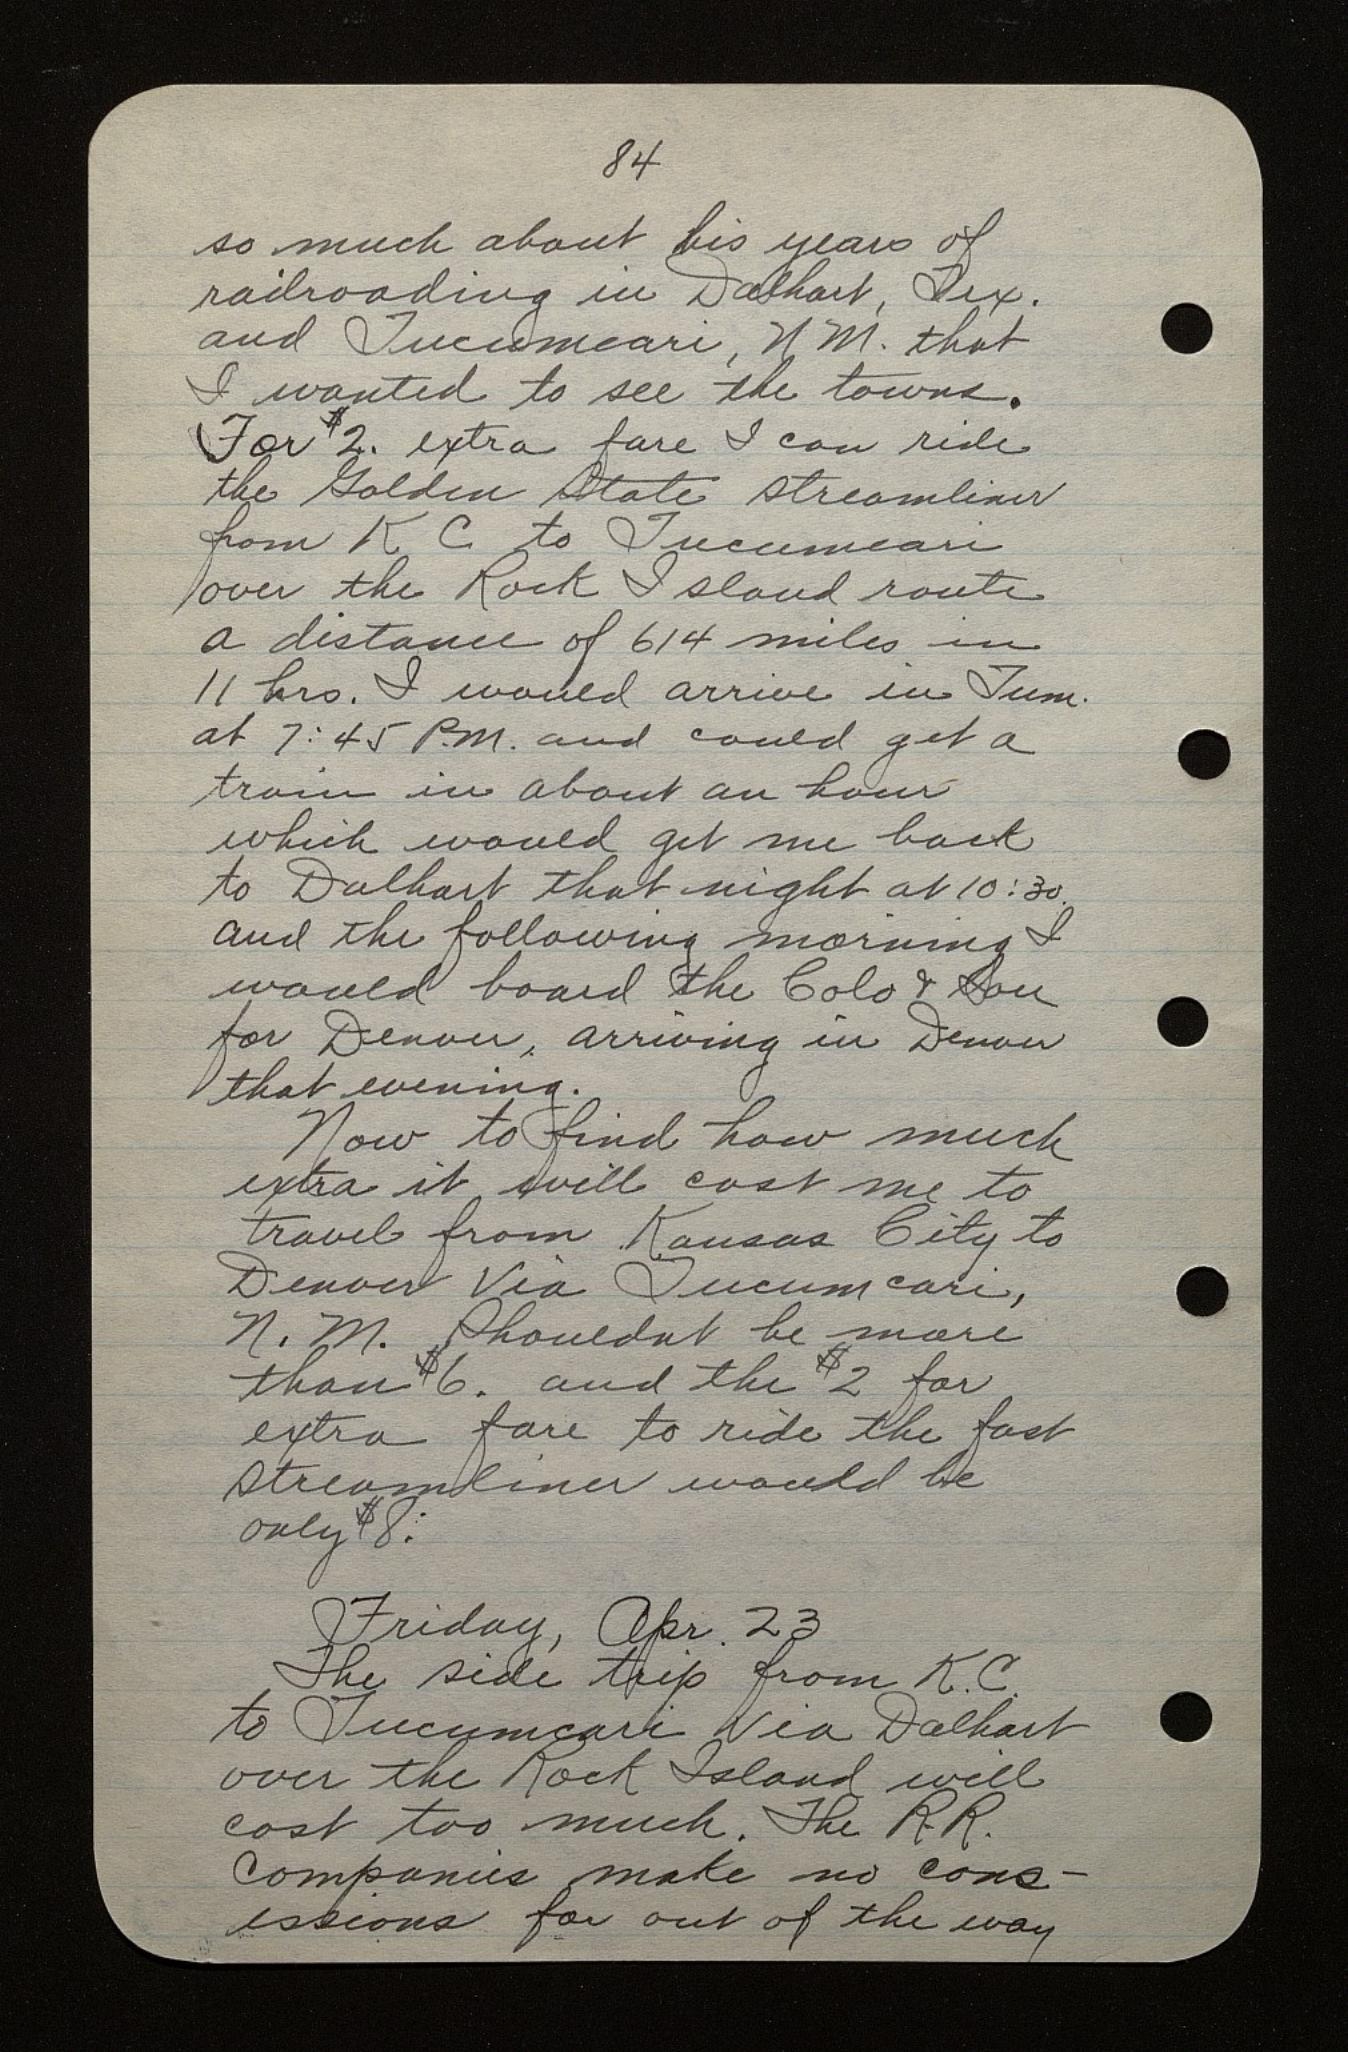 84
so much about his years of
railroading in Dalhart, Tex.
and Tucumcari, N M. that
I wanted to see the towns.
For $2. extra fare I can ride
the Golden State streamliner
from K C to Tucumcari
over the Rock Island route
a distance of 614 miles in
11 hrs. I would arrive in Tum.
at 7:45 P.M. and could get a
train in about an hour
which would get me back
to Dalhart that night at 10:30.
and the following morning I
would board the Colo & Sou
for Denver, arriving in Denver
that evening.
Now to find how much
extra it will cost me to
travel from Kansas City to
Denver via Tucumcari,
N. M. Shouldnt be more
than $6. and the $2 for
extra fare to ride the fast
streamliner would be
only $8.
Friday, Apr. 23
The side trip from K.C.
to Tucumcari via Dalhart
over the Rock Island will
cost too much. The R.R.
Companies make no cons-
essions for out of the way